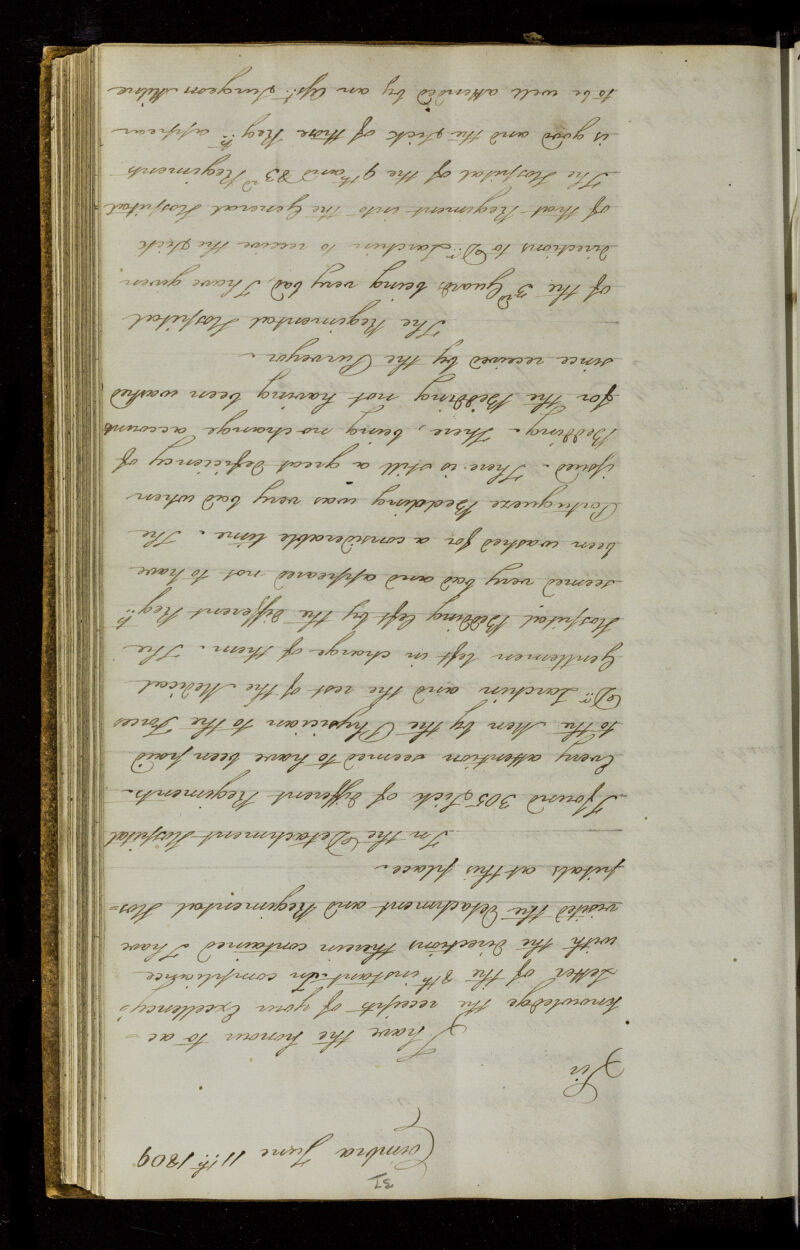 37
Coimbra June 11th. 1809
Sir
I have the honour to ac=
knowledge the receipt of your Excellency's
Letter of the 8th instant. In compliance
with the directions therein contained I have
visited the Detachment and Regimental Hos=
pitals at this place.
In the Detachment Hospital
I found 305 Sick of different Regiments.
Every attention seemed to have been paid
to the Men by the Physician to the Forces
Dr. Tonchin and the rest of the Medical
Gentlemen left in charge of them. The
Hospital Bedding left by the different Regts.
seemed very bad and appeared not to have
been washed for a considerable time. The
Portugueze Bedding was very bad when
issued. There is still a great deficiency of
Bedding. There, being no change accounts
for the Bedding not having been washed
since received by the Purveyor.
The Regimental Hospital
of the 3rd Guards being very bad, I have given
directions to Dr. Tonchin to receive the Sick
of that Regiment into the General Hospital
The Hospital of the 9th and 83rd Regiments
is good and the Sick of those Regts. appear
to be well attended by an Asst. Surgeon Milne